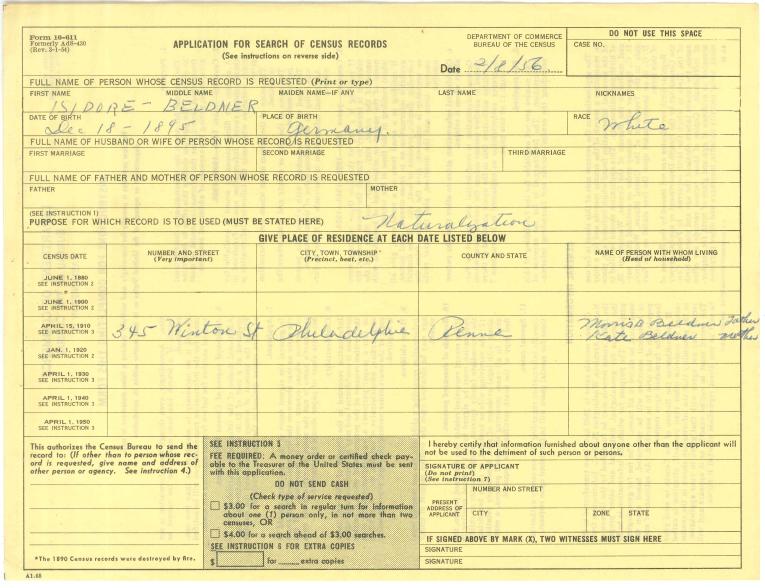 Form 10-611
Formerly Ad8-430
(Rev. 3-1-54)
APPLICATION FOR SEARCH OF CENSUS RECORDS
(See instructions on reverse side)
DEPARTMENT OF COMMERCE
BUREAU OF THE CENSUS
Date 2/8/56
DO NOT USE THIS SPACE
CASE NO.
FULL NAME OF PERSON WHOSE CENSUS RECORD IS REQUESTED (Print or type)
FIRST NAME MIDDLE NAME MAIDEN NAME—IF ANY LAST NAME NICKNAMES
ISIDORE - BELDNER
DATE OF BIRTH PLACE OF BIRTH RACE
Dec 18 - 1895 Germany. White
FULL NAME OF HUSBAND OR WIFE OF PERSON WHOSE RECORD IS REQUESTED
FIRST MARRIAGE SECOND MARRIAGE THIRD MARRIAGE
FULL NAME OF FATHER AND MOTHER OF PERSON WHOSE RECORD IS REQUESTED
FATHER MOTHER
(SEE INSTRUCTION 1)
PURPOSE FOR WHICH RECORD IS TO BE USED (MUST BE STATED HERE) Naturalization
GIVE PLACE OF RESIDENCE AT EACH DATE LISTED BELOW
CENSUS DATE NUMBER AND STREET (Very important) CITY, TOWN, TOWNSHIP (Precinct, beat, etc.) COUNTY AND STATE NAME OF PERSON WITH WHOM LIVING (Head of household)
JUNE 1, 1880
SEE INSTRUCTION 2
*
JUNE 1, 1900
SEE INSTRUCTION 2
APRIL 15, 1910 345 Winton St Philadelphia Penna Morris Beldner Father
SEE INSTRUCTION 3 Kate Beldner mother
JAN. 1, 1920
SEE INSTRUCTION 2
APRIL 1, 1930
SEE INSTRUCTION 3
APRIL 1, 1940
SEE INSTRUCTION 3
APRIL 1, 1950
SEE INSTRUCTION 3
This authorizes the Census Bureau to send the
record to: (If other than to person whose rec-
ord is requested, give name and address of
other person or agency. See instruction 4.)
*The 1890 Census records were destroyed by fire.
SEE INSTRUCTION 5
FEE REQUIRED: A money order or certified check pay-
able to the Treasurer of the United States must be sent
with this application.
DO NOT SEND CASH
(Check type of service requested)
$3.00 for a search in regular turn for information
about one (1) person only, in not more than two
censuses, OR
$4.00 for a search ahead of $3.00 searches.
SEE INSTRUCTION 6 FOR EXTRA COPIES
$ for extra copies
I hereby certify that information furnished about anyone other than the applicant will
not be used to the detriment of such person or persons.
SIGNATURE OF APPLICANT
(Do not print)
(See instruction 7)
PRESENT
ADDRESS OF
APPLICANT
NUMBER AND STREET
CITY ZONE STATE
IF SIGNED ABOVE BY MARK (X), TWO WITNESSES MUST SIGN HERE
SIGNATURE
SIGNATURE
A1.68